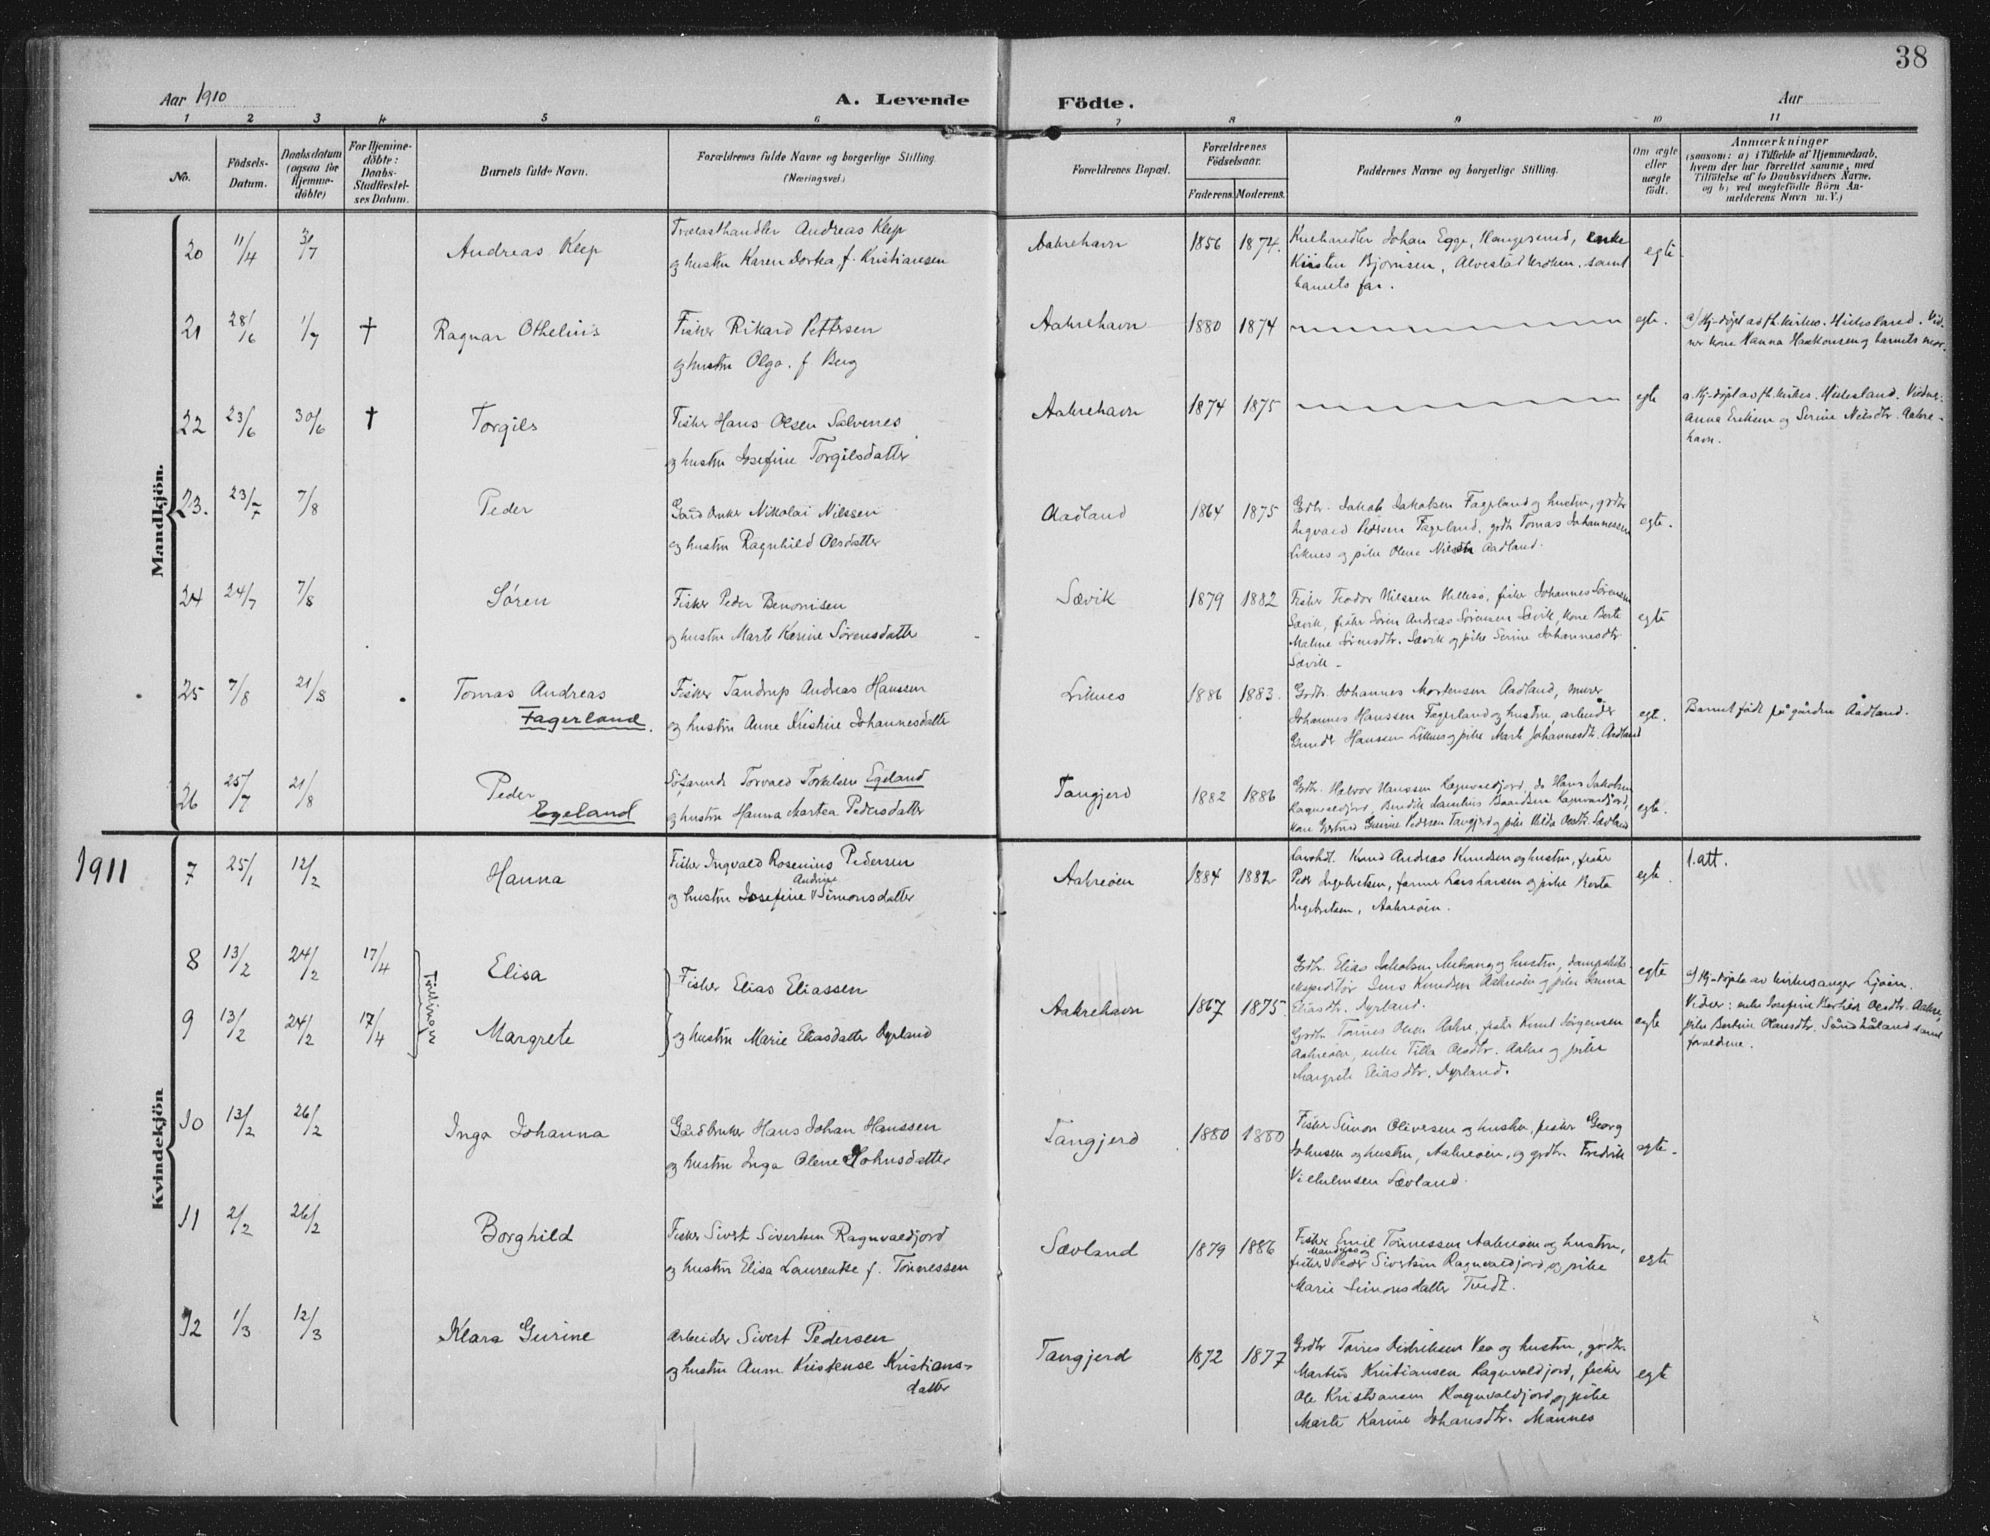 38
Aar 1910
A. Levende Födte.
Aar
1 2 3 4 5 6 7 8 9 10 11
No.
Födsels-Datum.
Daabsdatum (ogsaa for Hjemmedöbte)
For Hjemmedöbte: Daabs-Stadfæstelses Datum.
Barnets fulde Navn.
Forældrenes fulde Navne og borgerlige Stilling. (Næringsvei.)
Forældrenes Bopæl.
Forældrenes Födselsaar.
Faderens. Moderens.
Faddernes Navne og borgerlige Stilling.
Om ægte eller uægte födt.
Anmærkninger
(saasom: a) i Tilfælde af Hjemmedaab,
hvem der har forrettet samme, med
Tilföielse af to Daabsvidners Navne.
og b) ved uægtefödte Börn An-
melderens Navn m. V.)
Mandkjön.
20 11/4 3/7 Andreas Klep
Trælasthandler Andreas Klep
og hustru Karen Dorkea f. Kristiansen
Aakrehavn 1856 1874.
Johan Egge, Haugesund, enke
Kirsten Bjørnsen, samt
barnets far.
egte
21 28/6 1/7 † Ragnar Othelius
Fisker Rikard Pettersen
og hustru Olga. f. Berg
Aakrehavn 1880 1874
egte.
a) Hj-døpt av fh. kirkes. Hidesland. Vid-
ner kone Hanna Haakonsen og barnets mor.
22 23/6 30/6 † Torgils
Fisker Hans Olsen Salvenes
og hustru Josefine Torgilsdatter
Aakrehavn 1874 1875
egte
a. Hj-døpt av fh. kirkes. Hidesland. Vidner:
Anna Eriksen og Serine Nilsdtr. Aakre-
havn.
23. 23/7 7/8 Peder
Gårdbruker Nikolai Nilssen
og hustru Ragnhild Olsdatter
Aadland 1864 1875
Grdbr. Jakob Jakobsen Fagerland og hustru, grdbr
Ingvald Pedersen Fagerland, grdbr Tomas Johannessen
Liknes og pike Olene Nilsdtr Aadland.
egte.
24 24/7 7/8 Søren
Fisker Peder Benonisen
og hustru Marte Karine Sørensdatter
Sævik 1879 1882
Fisker Teodor Nilssen Hillesø, fisker Johannes Sørensen
Sævik, fisker Søren Andreas Sørensen Sævik, kone Berte
Maline Sørensdtr. Sævik og pike Serine Johannesdtr
Sævik -
egte
25 7/8 21/8 Tomas Andreas
Fagerland.
Fisker Tandrup Andreas Hanssen
og hustru Anne Kristine Johannesdatter
Liknes 1886 1883.
Grdbr. Johannes Mortensen Aadland, murer
Johannes Hanssen Fagerland og hustru, arbeider
Gunder Hansen Liknes og pike Marte Johannesdtr. Aadland
egte.
Barnet født på gården Aadland.
26 25/7 21/8 Peder
Egeland
Søfarende Torvald Torkelsen Egeland
og hustru Hanna Martea Pedersdatter
Tangjerd 1882 1886
Grdbr. Halvor Hanssen Ragnvaldjord, do Hans Jakobsen
Ragnvaldjord, Bendik Baardsen Ragnvaldjord,
kone Gurine Pedersen Tangjerd og pike Hilda Olsdtr. Sævland
egte.
1911
Kvindekjön
7 25/1 12/2 Hanna
Fisker Ingvald Rosenius Pedersen
Andrine
og hustru Josefine V Simonsdatter
Aakreøen 1884 1882
Knud Andreas Knudsen og hustru, fisker
Peder Ingebretsen, farmer Lars Larsen og pike Berta
Ingebretsen, Aakreøen.
egte.
1. att.
8 13/2 24/2 17/4 Elisa
Fisker Elias Eliassen
9 13/2 24/2 17/4 Tvillinger Margrete
og hustru Marie Eliasdatter Dyrland
Aakrehavn 1867 1875
Grdbr. Elias Jakobsen og hustru, dampskibs-
ekspeditør Jens Knudsen Aakreøen og pike Hanna
Eliasdtr. Dyrland.
Grdbr. Tønnes Olsen Aakre, fisker Knut Jørgensen
Aakreøen, enke Tilla Olsdtr. Aakre og pike
Margrete Eliasdtr. Dyrland.
egte
egte
a) Hj-døpte av kirkesanger Ljøen.
Vidner: enke Josefine Olsdtr. Aakre,
pike Bertine Hansdtr. Sandhåland samt
foreldrene.
10 13/2 26/2 Inga Johanna
Gårdbruker Hans Johan Hanssen
og hustru Inga Olene Johnsdatter
Tangjerd 1880 1880
Fisker Simon Oliversen og hustru, fisker Georg
Johnsen og hustru, Aakreøen, og grdbr. Fredrik
Vilhelmsen Sævland.
egte.
11 2/2 26/2 Borghild
Fisker Sivert Sivertsen Ragnvaldjord
og hustru Elisa Laurentse f. Tønnessen
Sævland 1879 1886
Fisker Emil Tønnessen Aakreøen og hustru,
fisker V Peder Sivertsen Ragnvaldjord, og pike
Marie Simonsdatter Tredt.
egte
12 1/3 12/3 Klara Gurine
Arbeider Sivert Pedersen
og hustru Anne Kristense Kristians-
datter
Tangjerd 1872 1877
Grdbr Torres Didriksen Vea og hustru, grdbr.
Martius Kristiansen Ragnvaldjord, fisker
Ole Kristiansen Ragnvaldjord, og pike
Marte Karine Johansdtr. Mannes
egte